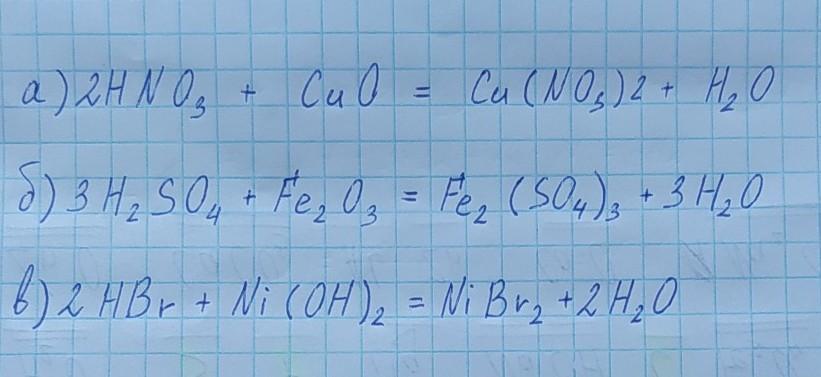 а) 2HNO₃ + CuO = Cu(NO₃)2 + H₂O
б) 3H₂SO₄ + Fe₂O₃ = Fe₂(SO₄)₃ + 3H₂O
в) 2HBr + Ni(OH)₂ = NiBr₂ + 2H₂O